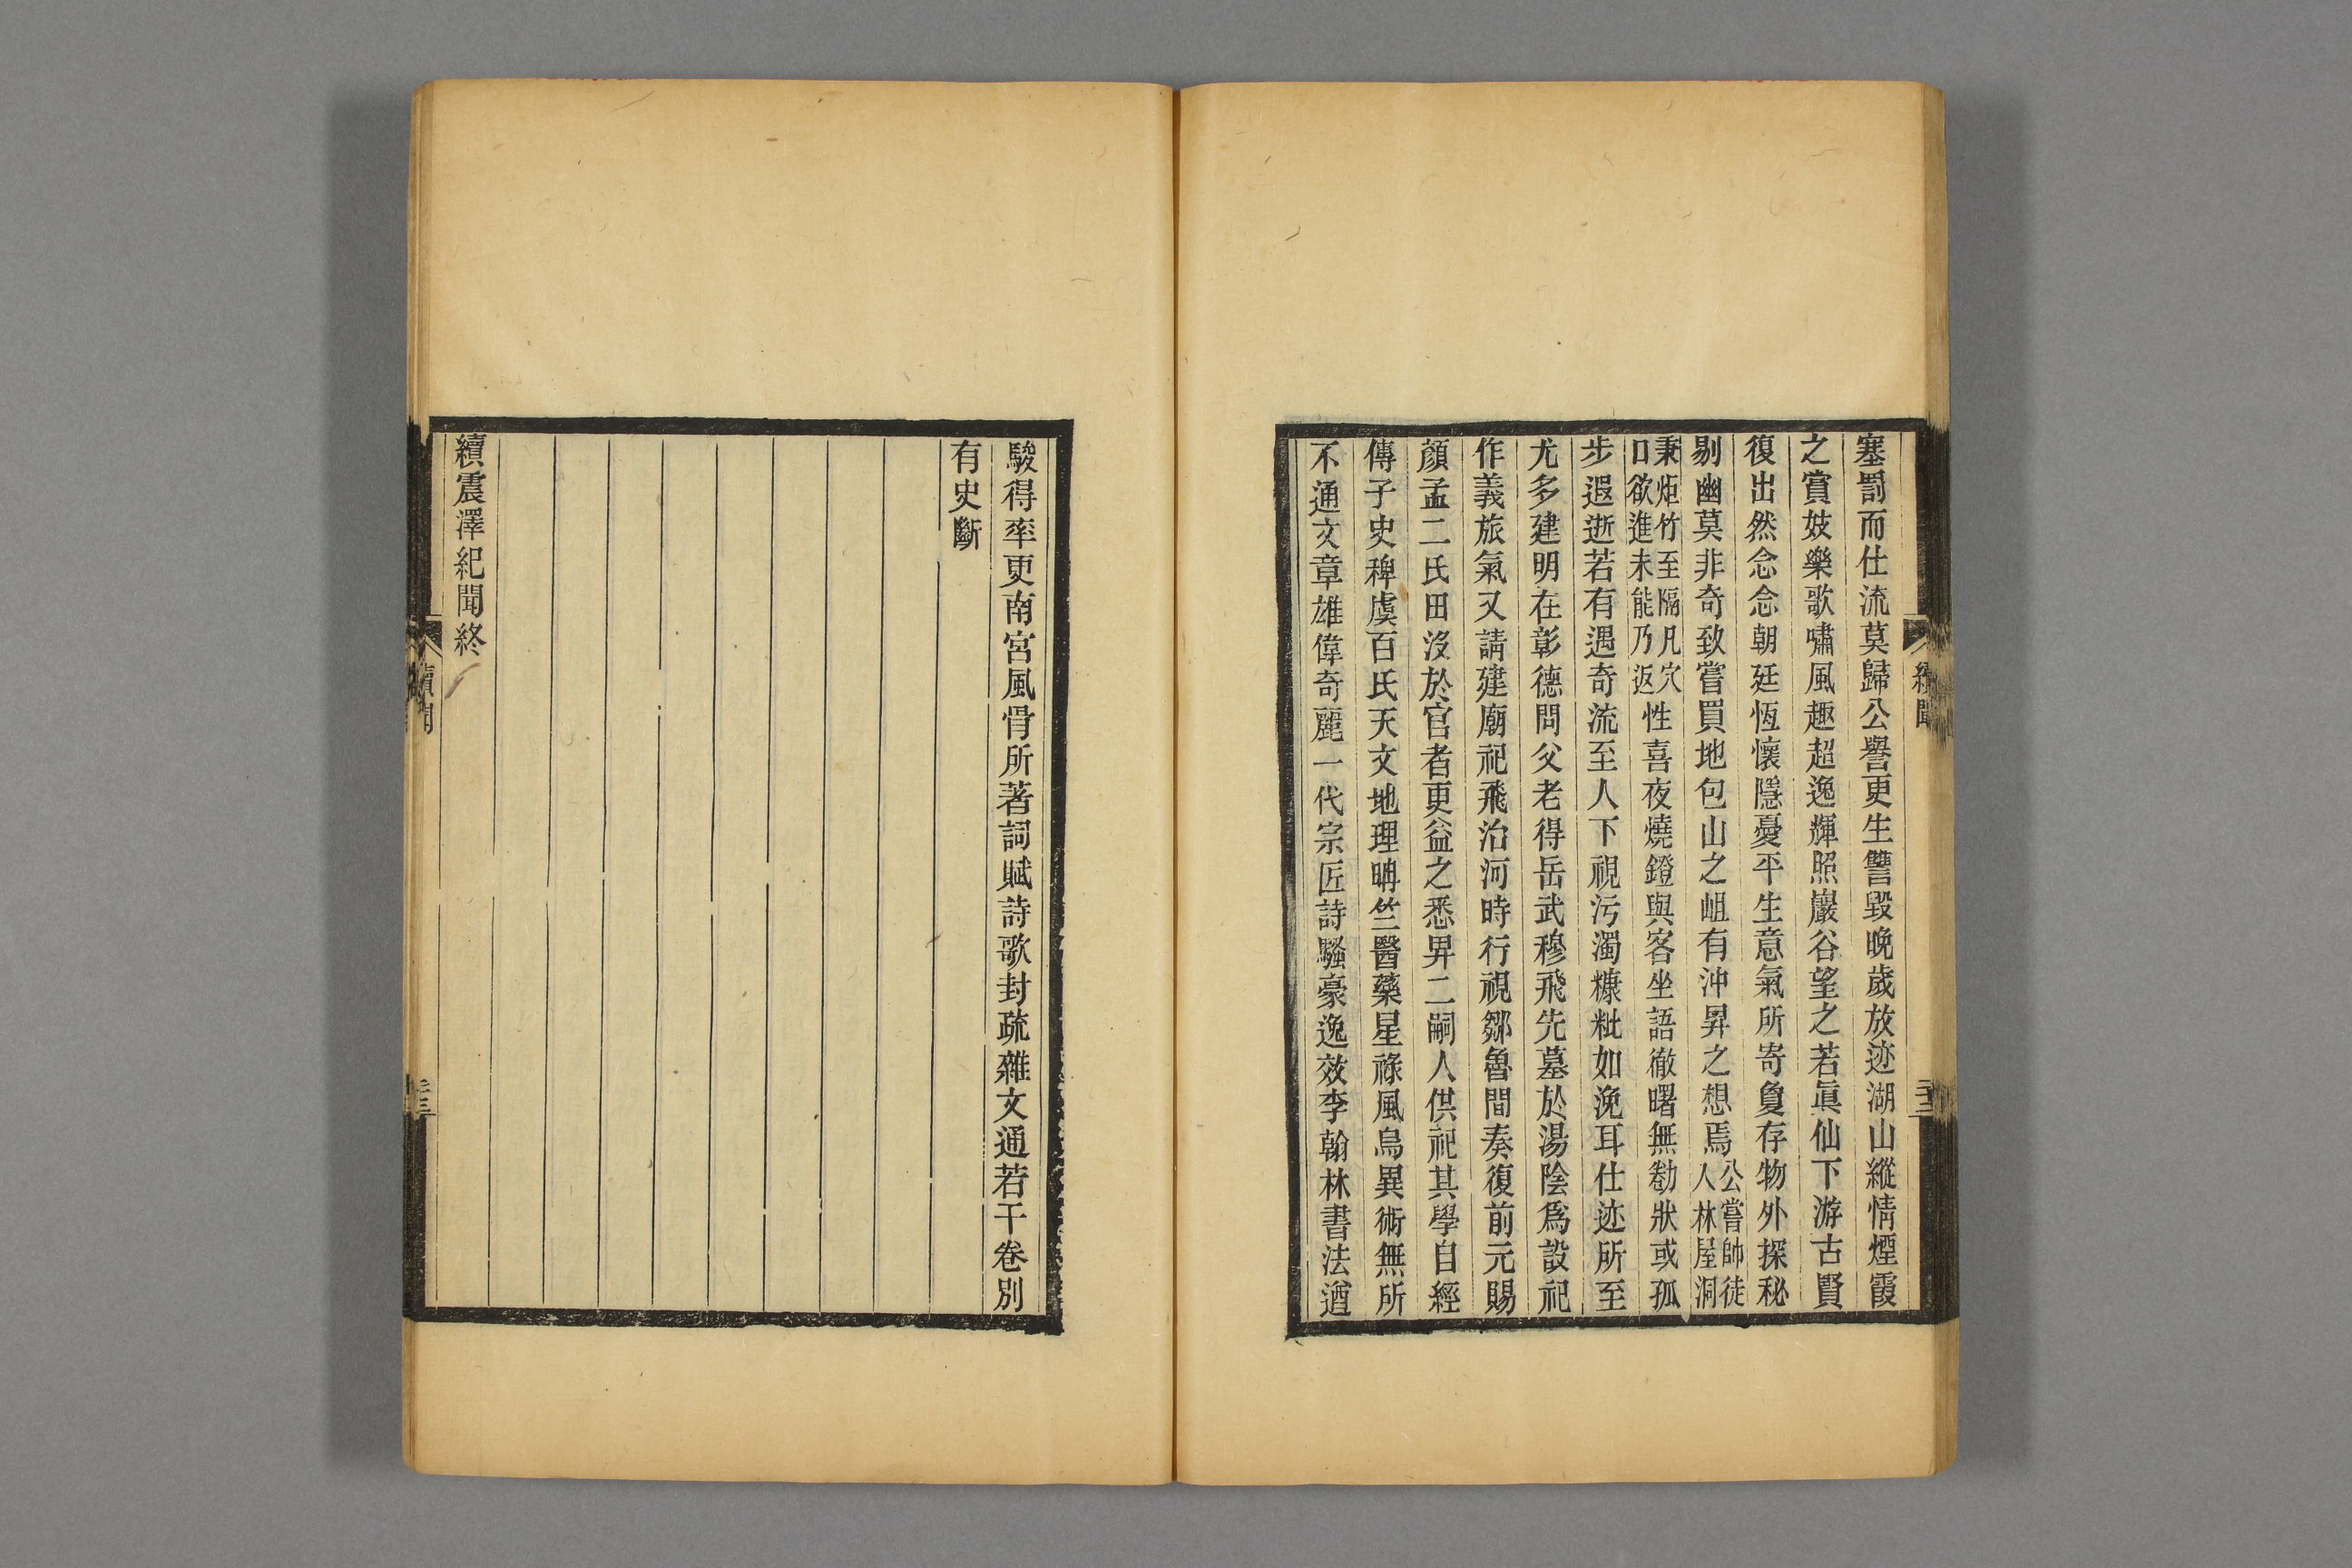 塞罰而仕流莫歸公譽更生讐毀晚歲放迹湖山縱情煙霞
之賞妓樂歌嘯風趣超逸輝照巖谷望之若眞仙下游古賢
復出然念念朝廷恆懷隱憂平生意氣所寄敻存物外探秘
剔幽莫非奇致嘗買地包山之岨有沖昇之想焉公嘗帥徒人林屋洞
秉炬竹至隔凡穴口欲進未能乃返性喜夜燒鐙與客坐語徹曙無勌狀或孤
步遐逝若有遇奇流至人下視污濁糠粃如浼耳仕迹所至
尤多建明在彰德問父老得岳武穆飛先墓於湯陰爲設祀
作義旅氣又請建廟祀飛治河時行視鄒魯間奏復前元賜
顏孟二氏田沒於官者更益之悉畀二嗣人供祀其學自經
傳子史稗虞百氏天文地理畊竺醫藥星祿風鳥異術無所
不通文章雄偉奇麗一代宗匠詩騷豪逸效李翰林書法遒
續聞
駿得率更南宮風骨所著詞賦詩歌封疏雜文通若干卷別
有史斷
續震澤紀聞終
續聞